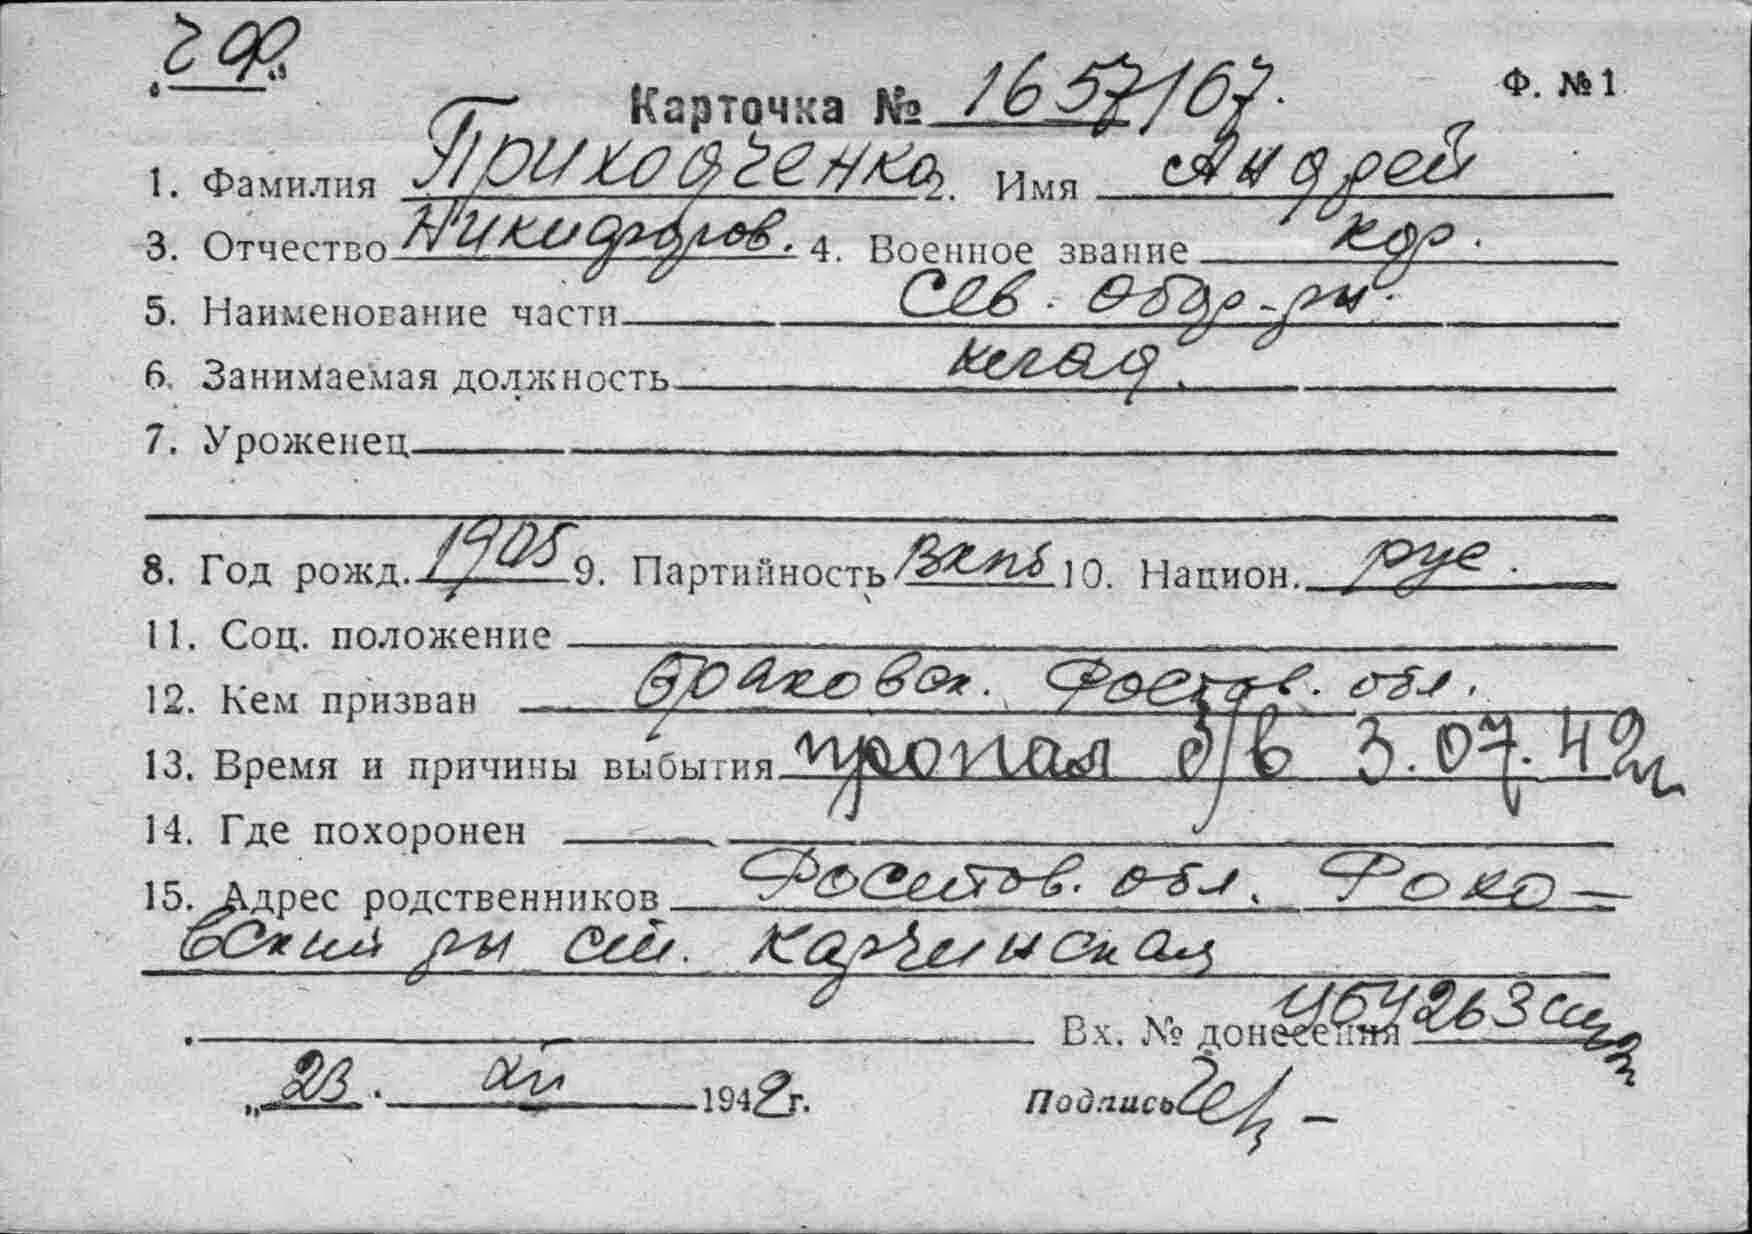 „ЧФ“
Ф. №1
Карточка № 1657/167.
1. Фамилия Приходченко 2. Имя Андрей
3. Отчество Никифоров. 4. Военное звание кор.
5. Наименование части Сев. обор. р-н.
6. Занимаемая должность клад.
7. Уроженец
8. Год рожд. 1905 9. Партийность ВКПб 10. Национ. рус.
11. Соц. положение
12. Кем призван Ростов. обл.
13. Время и причины выбытия пропал б/в 3.07.42г
14. Где похоронен
15. Адрес родственников Ростов. обл.
вский рн ст. Каргинская
Вх. № донесения
„23. XII 1942г.
Подпись